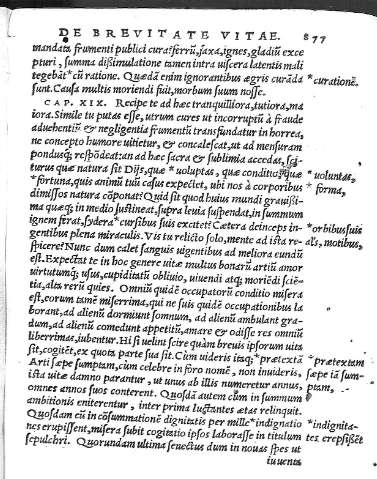 DE BREVITATE VITAE. 877
mandata frumenti publici cura? ferrũ, saxa, ignes, gladiũ exce
pturi, summa dißimulatione tamen intra uiscera latentis mali
tegebãt *cũ ratione. Quædã enim ignorantibus ægris curãda *curationẽ.
sunt. Causa multis moriendi fuit, morbum suum nosse.
CAP. XIX. Recipe te ad hæc tranquilliora, tutiora, ma
iora. Simile tu putas esse, utrum cures ut incorruptũ à fraude
aduehentiũ & negligentia frumentũ transfundatur in horrea,
ne concepto humore uitietur, & concalescat, ut ad mensuram
pondusq; respõdeat: an ad hæc sacra & sublimia accedas, sci
turus quæ natura sit Dijs, quæ *uoluptas, quæ conditio, quæ *uoluntas,
*fortuna, quis animũ tuũ casus expectet, ubi nos à corporibus *forma,
dimissos natura cõponat? Quid sit quod huius mundi grauißi-
ma quæq; in medio sustineat, supra leuia suspendat, in summum
ignem ferat, sydera *cursibus suis excitet? Cætera deinceps in- *orbibus suis
gentibus plena miraculis. Vis tu relicto solo, mente ad ista re- als, motibus,
spicere? Nunc dum calet sanguis uigentibus ad meliora eundũ
est. Expectat te in hoc genere uitæ multum bonarũ artiũ amor
uirtutumq; usus, cupiditatũ obliuio, uiuendi atq; moriẽdi sciẽ-
tia, alta rerũ quies. Omniũ quidẽ occupatorũ conditio misera
est, eorum tamẽ miserrima, qui ne suis quidẽ occupationibus la
borant, ad alienũ dormiunt somnum, ad alienũ ambulant gra-
dum, ad alienũ comedunt appetitũ, amare & odisse res omniũ
liberrimas, iubentur. Hi si uelint scire quàm breuis ipsorum uita
sit, cogitẽt, ex quota parte sua sit. Cùm uideris itaq; *prætextã *prætextam
Arti sæpe sumptam, cùm celebre in foro nomẽ, non inuideris, sæpe iã sum-
ista uitæ damno parantur, ut unus ab illis numeretur annus, ptam,
omnes annos suos conterent. Quosdam autem cùm in summum
ambitionis eniterentur, inter prima luctantes ætas relinquit.
Quosdam cũ in cõsummationẽ dignitatis per mille *indignatio *indignita-
nes erupissent, misera subit cogitatio ipsos laborasse in titulum tes erepsißẽt
sepulchri. Quorundam ultima senectus dum in nouas spes ut
iuuenta